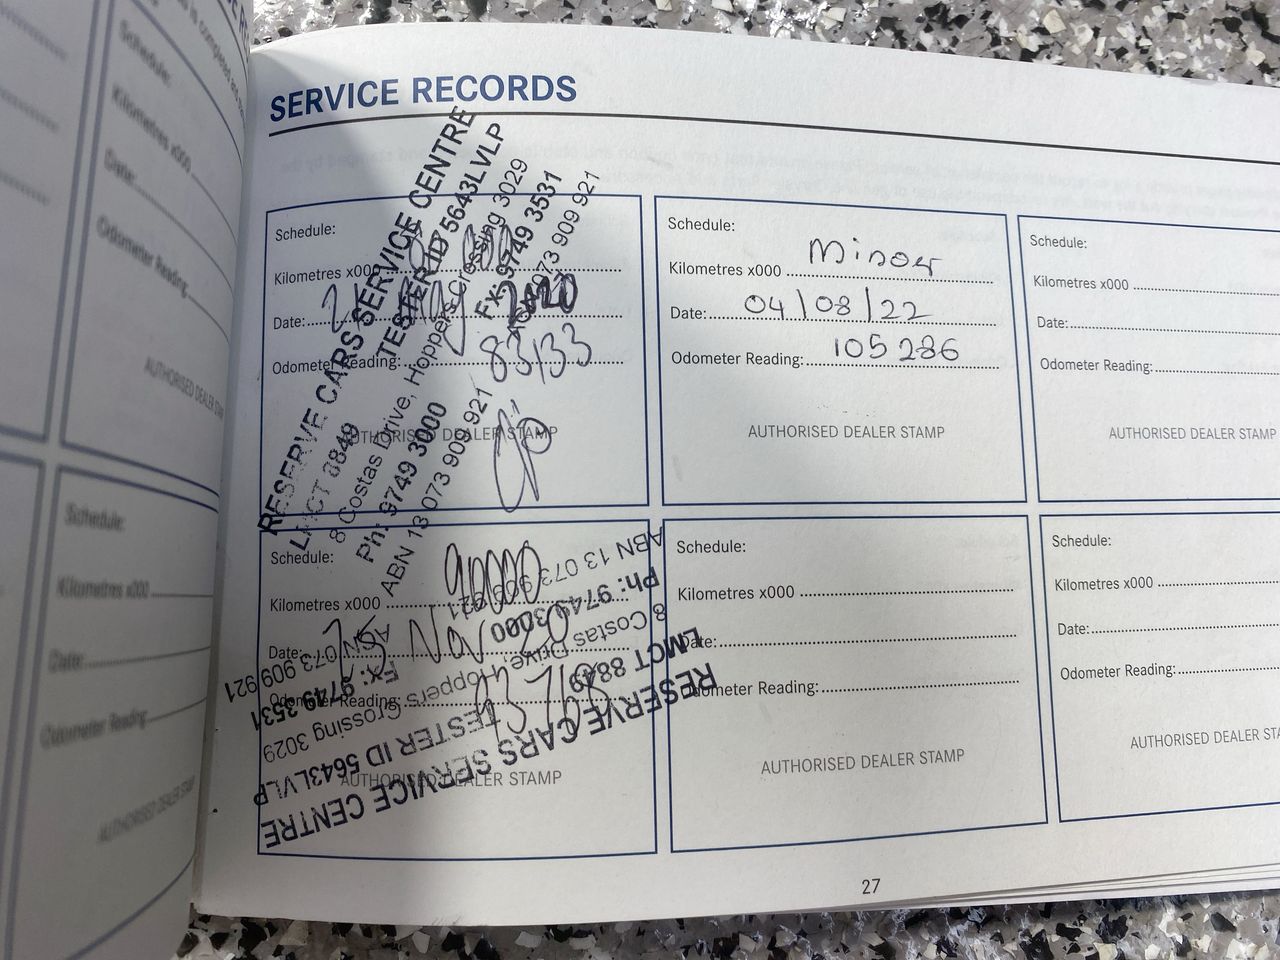 SERVICE RECORDS
Schedule:
Kilometres x000
Date:
Odometer Reading:
AUTHORISED DEALER STAMP
Schedule:
Kilometres x000
Date:
Odometer Reading
AUTHORISED DEALER STAMP
Schedule:
Kilometres x000
Date: May 2020
Odometer Reading: 83133
AUTHORISED DEALER STAMP
RESERVE CARS SERVICE CENTRE
LMCT 8849 TESTER ID 5643LVLP
8 Costas Drive, Hoppers Crossing 3029
Ph: 9749 3000 FX: 9749 3531
ABN 13 073 909 921 073 909 921
Schedule:
Kilometres x000 Minor
Date: 04/08/22
Odometer Reading: 105286
AUTHORISED DEALER STAMP
Schedule:
Kilometres x000
Date:
Odometer Reading:
AUTHORISED DEALER STAMP
Schedule: 90000
Kilometres x000
Date: 25 Nov 20
Odometer Reading:
AUTHORISED DEALER STAMP
RESERVE CARS SERVICE CENTRE
LMCT 8849 TESTER ID 5643LVLP
8 Costas Drive, Hoppers Crossing 3029
Ph: 9749 3000 Fx: 9749 3531
ABN 13 073 909 921 ABN 073 909 921
Schedule:
Kilometres x000
Date:
Odometer Reading:
AUTHORISED DEALER STAMP
Schedule:
Kilometres x000
Date:
Odometer Reading:
AUTHORISED DEALER STA
27